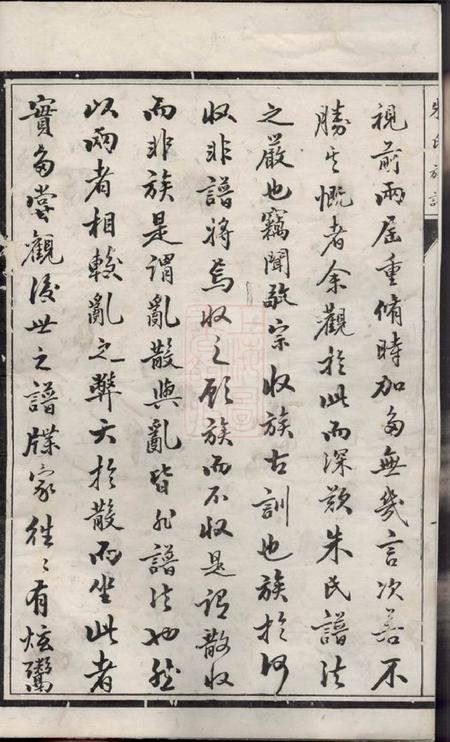 視前兩屆重脩時加多無幾言次若不
勝其慨者余觀於此而深歎朱氏譜法
之嚴也竊聞敬宗收族古訓也族於何
收非譜將焉收之顧族而不收是謂散收
而非族是謂亂散與亂皆非譜法也然
以兩者相較亂之弊大於散而坐此者
實多嘗觀後世之譜牒家往往有炫鬻
朱氏族譜